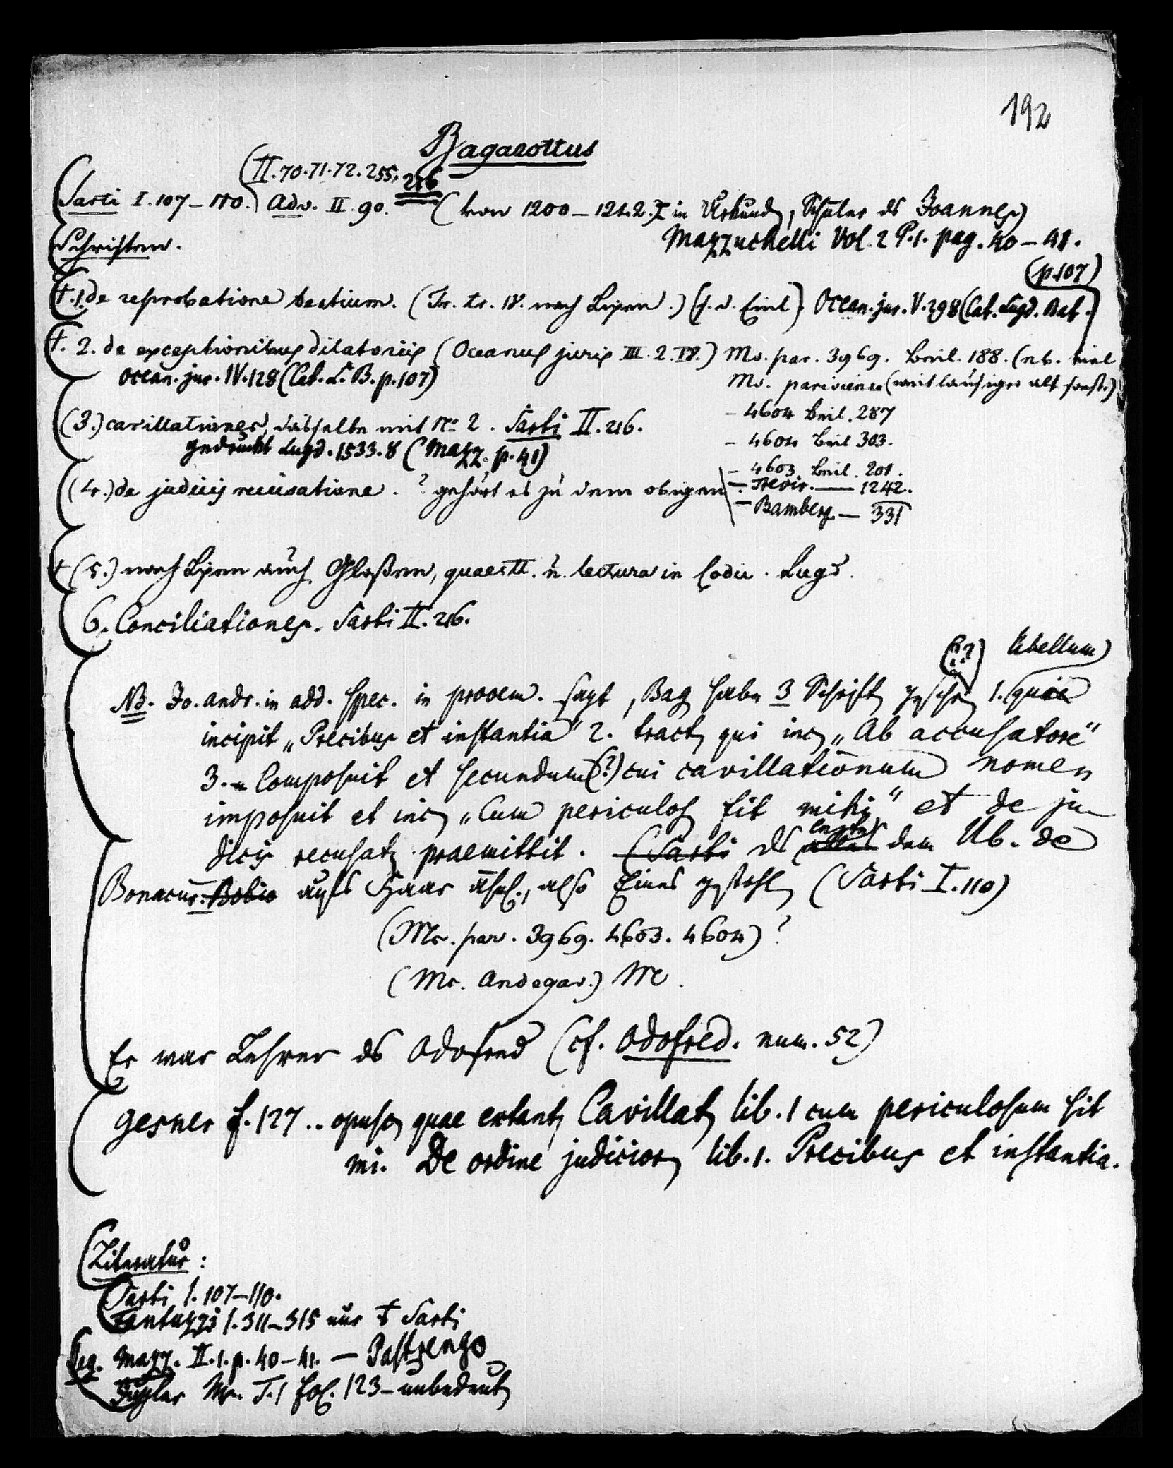 192
Bagarottus
(II. 70. 71. 72. 255. 216
Sarti I. 107–110.) Adv. II 90. (von 1200–1242 in Urkunden, Schüler des Joannes)
Mazzuchelli Vol. 2 P. 1. pag. 40–41.
Schriften.
(p. 107)
†. 1. de reprobatione testium. (Tr. tr. IV. nach Lipen.) Ocean. jur. V. 298 (Cat. Lugd. Bat.
†. 2. de exceptionibus dilatoriis (Oceanus juris III. 2. IV.) Ms. par. 3969. Brit. 188.
Ocean. jur. IV. 128 (Cat. L. B. p. 107)
Ms. parisiense
(3.) cavillationes, dasselbe mit No 2. Sarti II. 216.
– 4604 287
gedruckt Lugd. 1533. 8 (Mazz. p. 41)
– 4604 303.
– 4603 201.
(4.) de judiciis recusatione. ? gehört es zu dem obigen
– Trevir. — 1242.
– Bamberg — 331
† (5.) nach Lipen auch Gloßen, quaest. u. lectura in Codic. Lugd.
6. Conciliationes. Sarti II. 216.
(??) libellum)
NB. Jo. andr. in add. spec. in prooem. sagt, Bag habe 3 Schriften geschr. 1. quia
incipit „Precibus et instantia" 2. tract. qui inc. „Ab accusatore"
3. – Composuit et secundum (?) cui cavillationum nomen
imposuit et inc. „Cum periculos sit mihi" et de ju-
diciis recusat. praemittit. (Sarti des dem Lib. de
Bonacur. Bobio aufs Haar ähnl., also Eines gestohlen (Sarti I. 110)
(Ms. par. 3969. 4603. 4604) ?
(Ms. Andegav.)
Er war Lehrer des Odofred (cf. Odofred. num. 52)
Gesner f. 127 .. opusc. quae extant, Cavillat. lib. 1 cum periculosum sit
mi. De ordine judicior. lib. 1. Precibus et instantia.
Literatur:
Sarti I. 107–110.
Fantuzzi I. 311–315 nur † Sarti
Mazz. II. 1. p. 40–41. — Pastrengo
Ms. T. 1 fol. 123 – unbedeut.